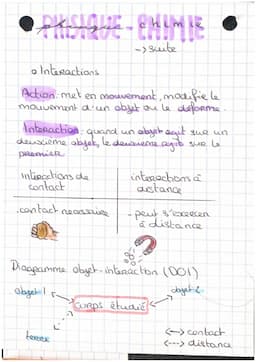 PHYSIQUE-CHIMIE
→ suite
o Interactions
Action: met en mouvement, modifie le
mouvement d'un objet ou le déforme.
Interaction: quand un objet agit sur un
deuxième objet, le deuxième agit sur le
premier
interactions de contact
interactions à distance
- contact nécessaire
- peut s'exercer à distance
Diagramme objet-interaction (DOI)
objet 1
objet 2
corps étudié
terre
↔ contact
<---> distance